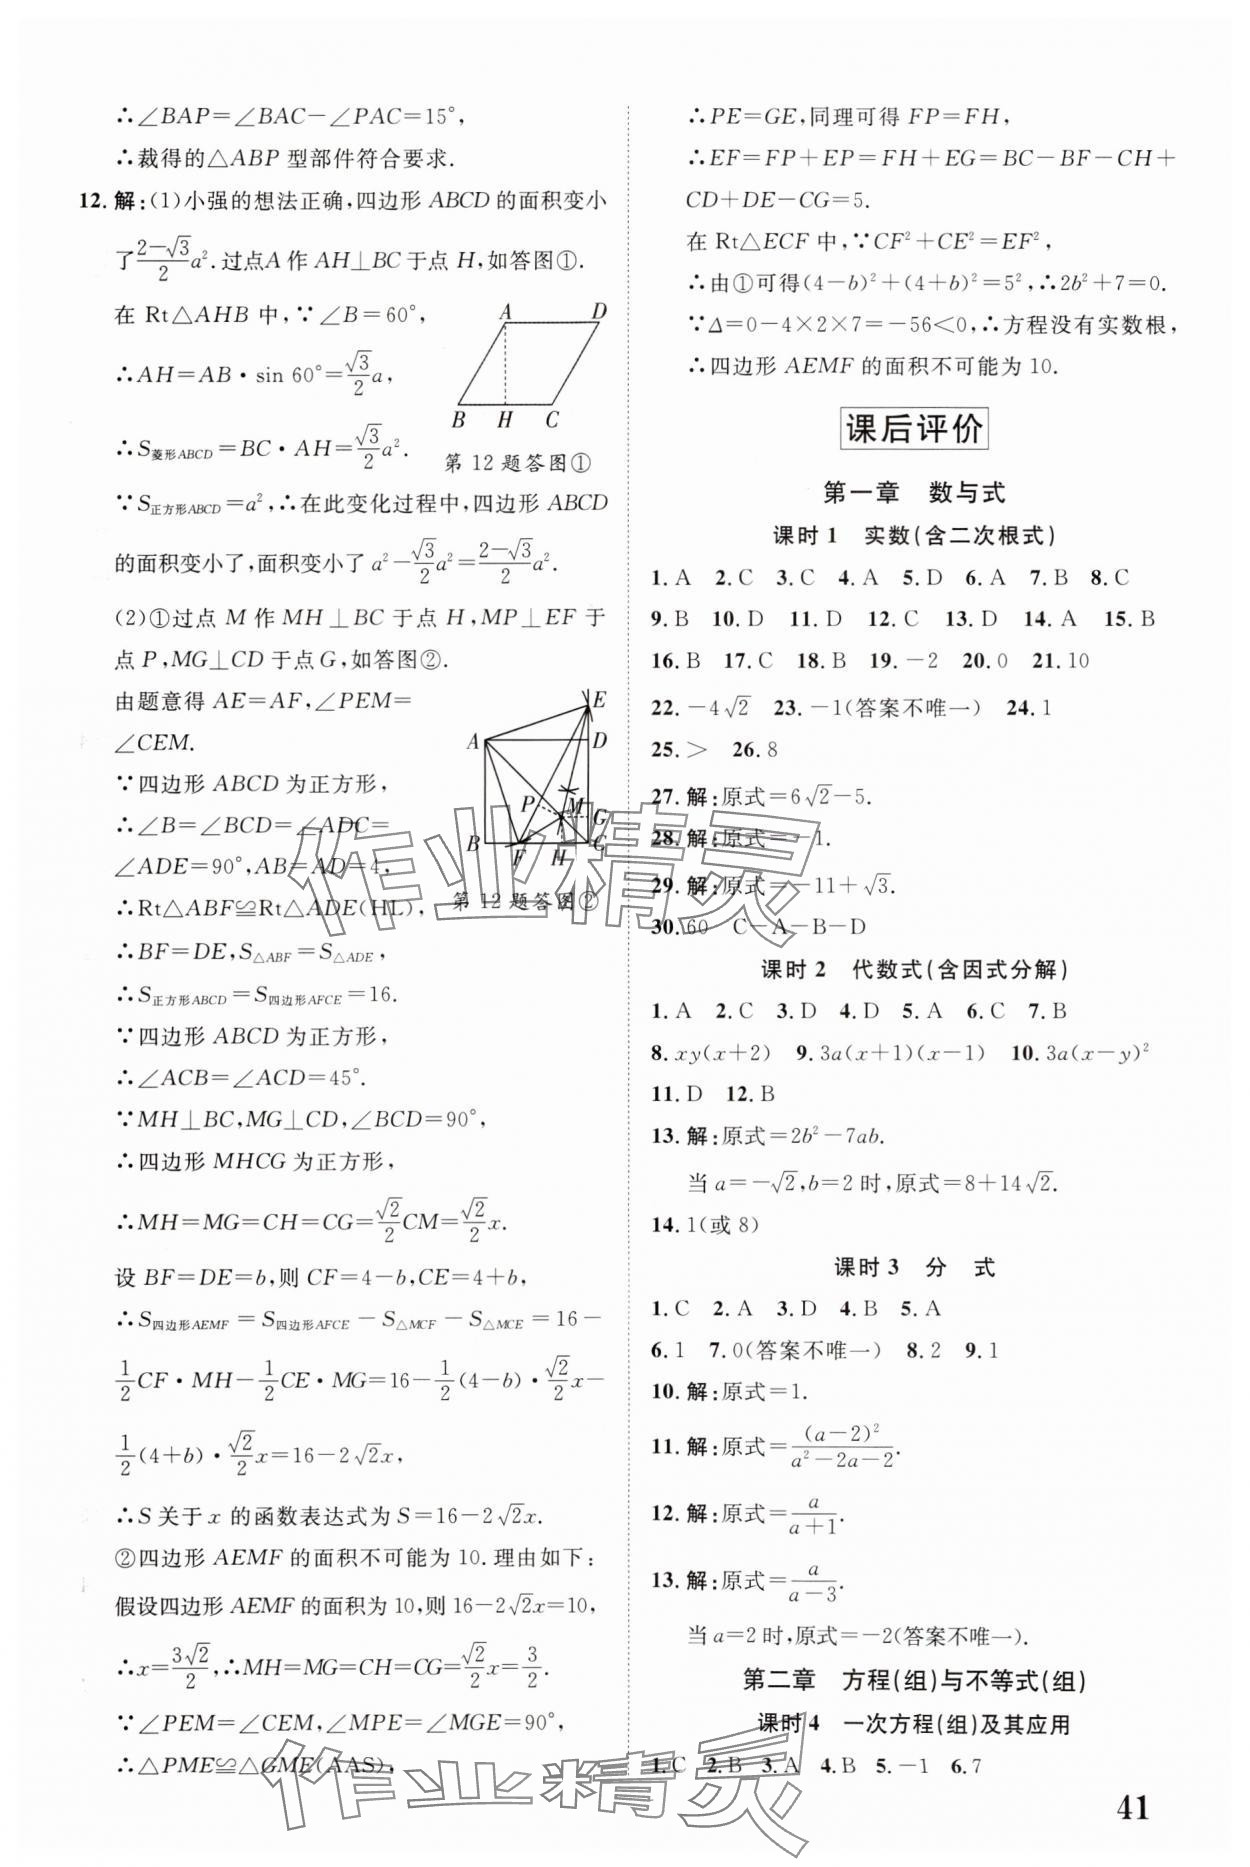 ∴∠BAP=∠BAC-∠PAC=15°,
∴裁得的△ABP 型部件符合要求.
12. 解:(1)小强的想法正确,四边形 ABCD 的面积变小
了$\frac{2-\sqrt{3}}{2}a^2$.过点A 作 AH⊥BC于点 H,如答图①.
在 Rt△AHB 中,∵∠B=60°,
∴AH=AB·sin 60°=$\frac{\sqrt{3}}{2}a$,
∴$S_{菱形ABCD}$=BC·AH=$\frac{\sqrt{3}}{2}a^2$.
A D
B H C
第12题答图①
∵$S_{正方形ABCD}=a^2$,∴在此变化过程中,四边形 ABCD
的面积变小了,面积变小了 $a^2-\frac{\sqrt{3}}{2}a^2=\frac{2-\sqrt{3}}{2}a^2$.
(2)①过点 M 作 MH⊥BC 于点 H,MP⊥EF 于
点 P,MG⊥CD 于点G,如答图②.
由题意得 AE=AF,∠PEM=
∠CEM.
∵四边形 ABCD 为正方形,
∴∠B=∠BCD=∠ADC=
∠ADE=90°,AB=AD=4,
∴Rt△ABF≌Rt△ADE(HL),
E
A D
P M G
B F H C
第12题答图②
∴BF=DE,$S_{△ABF}=S_{△ADE}$,
∴$S_{正方形ABCD}=S_{四边形AFCE}$=16.
∵四边形 ABCD 为正方形,
∴∠ACB=∠ACD=45°.
∵MH⊥BC,MG⊥CD,∠BCD=90°,
∴四边形 MHCG 为正方形,
∴MH=MG=CH=CG=$\frac{\sqrt{2}}{2}$CM=$\frac{\sqrt{2}}{2}x$.
设 BF=DE=b,则 CF=4-b,CE=4+b,
∴$S_{四边形AEMF}=S_{四边形AFCE}-S_{△MCF}-S_{△MCE}$=16-
$\frac{1}{2}$CF·MH-$\frac{1}{2}$CE·MG=16-$\frac{1}{2}$(4-b)·$\frac{\sqrt{2}}{2}x$-
$\frac{1}{2}$(4+b)·$\frac{\sqrt{2}}{2}x$=16-2$\sqrt{2}$x,
∴S 关于 x 的函数表达式为 S=16-2$\sqrt{2}$x.
②四边形 AEMF 的面积不可能为 10.理由如下:
假设四边形 AEMF 的面积为 10,则 16-2$\sqrt{2}$x=10,
∴x=$\frac{3\sqrt{2}}{2}$,∴MH=MG=CH=CG=$\frac{\sqrt{2}}{2}x=\frac{3}{2}$.
∵∠PEM=∠CEM,∠MPE=∠MGE=90°,
∴△PME≌△GME(AAS),
∴PE=GE,同理可得 FP=FH,
∴EF=FP+EP=FH+EG=BC-BF-CH+
CD+DE-CG=5.
在 Rt△ECF 中,∵$CF^2+CE^2=EF^2$,
∴由①可得$(4-b)^2+(4+b)^2=5^2$,∴$2b^2+7=0$.
∵Δ=0-4×2×7=-56<0,∴方程没有实数根,
∴四边形 AEMF 的面积不可能为 10.
课后评价
第一章 数与式
课时1 实数(含二次根式)
1. A 2. C 3. C 4. A 5. D 6. A 7. B 8. C
9. B 10. D 11. D 12. C 13. D 14. A 15. B
16. B 17. C 18. B 19. -2 20. 0 21. 10
22. -4$\sqrt{2}$ 23. -1(答案不唯一) 24. 1
25. > 26. 8
27. 解:原式=6$\sqrt{2}$-5.
28. 解:原式=-1.
29. 解:原式=-11+$\sqrt{3}$.
30. 60 C-A-B-D
课时2 代数式(含因式分解)
1. A 2. C 3. D 4. D 5. A 6. C 7. B
8. xy(x+2) 9. 3a(x+1)(x-1) 10. $3a(x-y)^2$
11. D 12. B
13. 解:原式=$2b^2-7ab$.
当 a=-$\sqrt{2}$,b=2 时,原式=8+14$\sqrt{2}$.
14. 1(或 8)
课时3 分 式
1. C 2. A 3. D 4. B 5. A
6. 1 7. 0(答案不唯一) 8. 2 9. 1
10. 解:原式=1.
11. 解:原式=$\frac{(a-2)^2}{a^2-2a-2}$.
12. 解:原式=$\frac{a}{a+1}$.
13. 解:原式=$\frac{a}{a-3}$.
当 a=2 时,原式=-2(答案不唯一).
第二章 方程(组)与不等式(组)
课时4 一次方程(组)及其应用
1. C 2. B 3. A 4. B 5. -1 6. 7
41
作业精灵
作业精灵